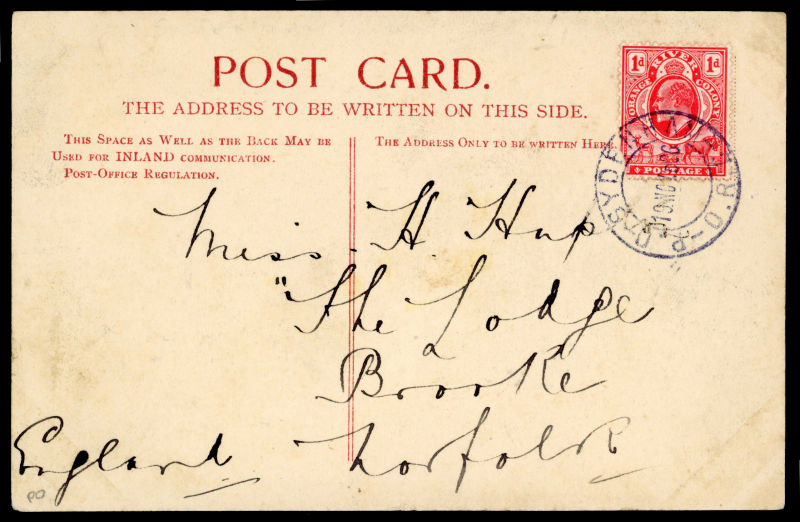 POST CARD.
THE ADDRESS TO BE WRITTEN ON THIS SIDE.
THIS SPACE AS WELL AS THE BACK MAY BE
USED FOR INLAND COMMUNICATION.
POST-OFFICE REGULATION.
THE ADDRESS ONLY TO BE WRITTEN HERE
1d 1d
ORANGE RIVER COLONY
POSTAGE
SYDENHAM
O.R.C.
Miss. H. Hup
"The Lodge"
Brooke
Norfolk
England
PO